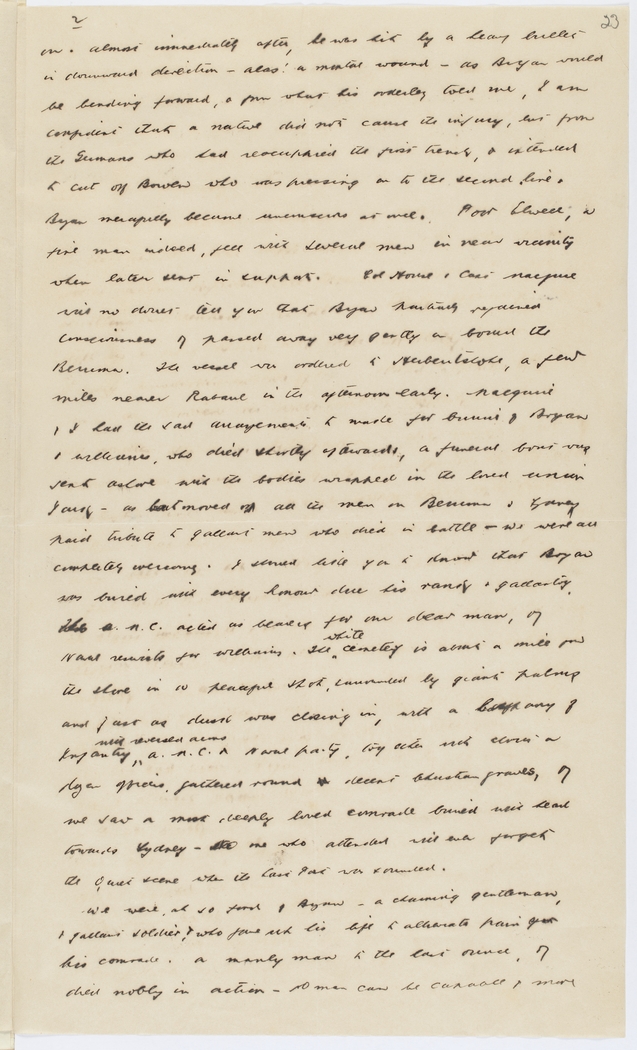 2
23
on. Almost immediately after, he was hit by a heavy bullet
in downward direction – alas! a mortal wound – as Bryan would
be bending forward, & from what his orderley told me, I am
confident that a native did not cause the injury, but from
the Germans who had reoccupied the first trench, & intended
to cut off Bowen who was pressing on to the second line.
Bryan mercifully became unconscious at once. Poor Elwell, a
fine man indeed, fell with several men in near vicinity
when later sent in support. Col Howse & Capt Maguire
will no doubt tell you that Bryan partially regained
consciousness & passed away very gently on board the
Berrima. The vessel was ordered to Herbertshohe, a few
miles nearer Rabaul in the afternoon early. Maguire
& I had the sad arrangements to make for burial of Bryan
& Williams, who died shortly afterwards, a funeral boat was
sent ashore with the bodies wrapped in the loved Union
Jack – as boat moved off all the men on Berrima & Sydney
paid tribute to gallant men who died in battle – we were all
completely overcome. I should like you to know that Bryan
was buried with every honour due his rank & gallantry.
A.M.C. acted as bearers for our dear man, &
Naval reservists for Williams. The white cemetery is about a mile from
the shore in a peaceful spot, surrounded by giant palms
and just as dusk was closing in, with a company of
Infantry, with reversed arms A.M.C. & Naval party, together with
officers, gathered round decent Christian graves, &
we saw a most deeply loved comrade buried with head
towards Sydney – no one who attended will ever forget
the quiet scene when the Last Post was sounded.
We were all so fond of Bryan – a charming gentleman,
& gallant soldier, who gave up his life to alleviate pain
his comrade. A manly man to the last ounce, &
died nobly in action – no man can be capable of more